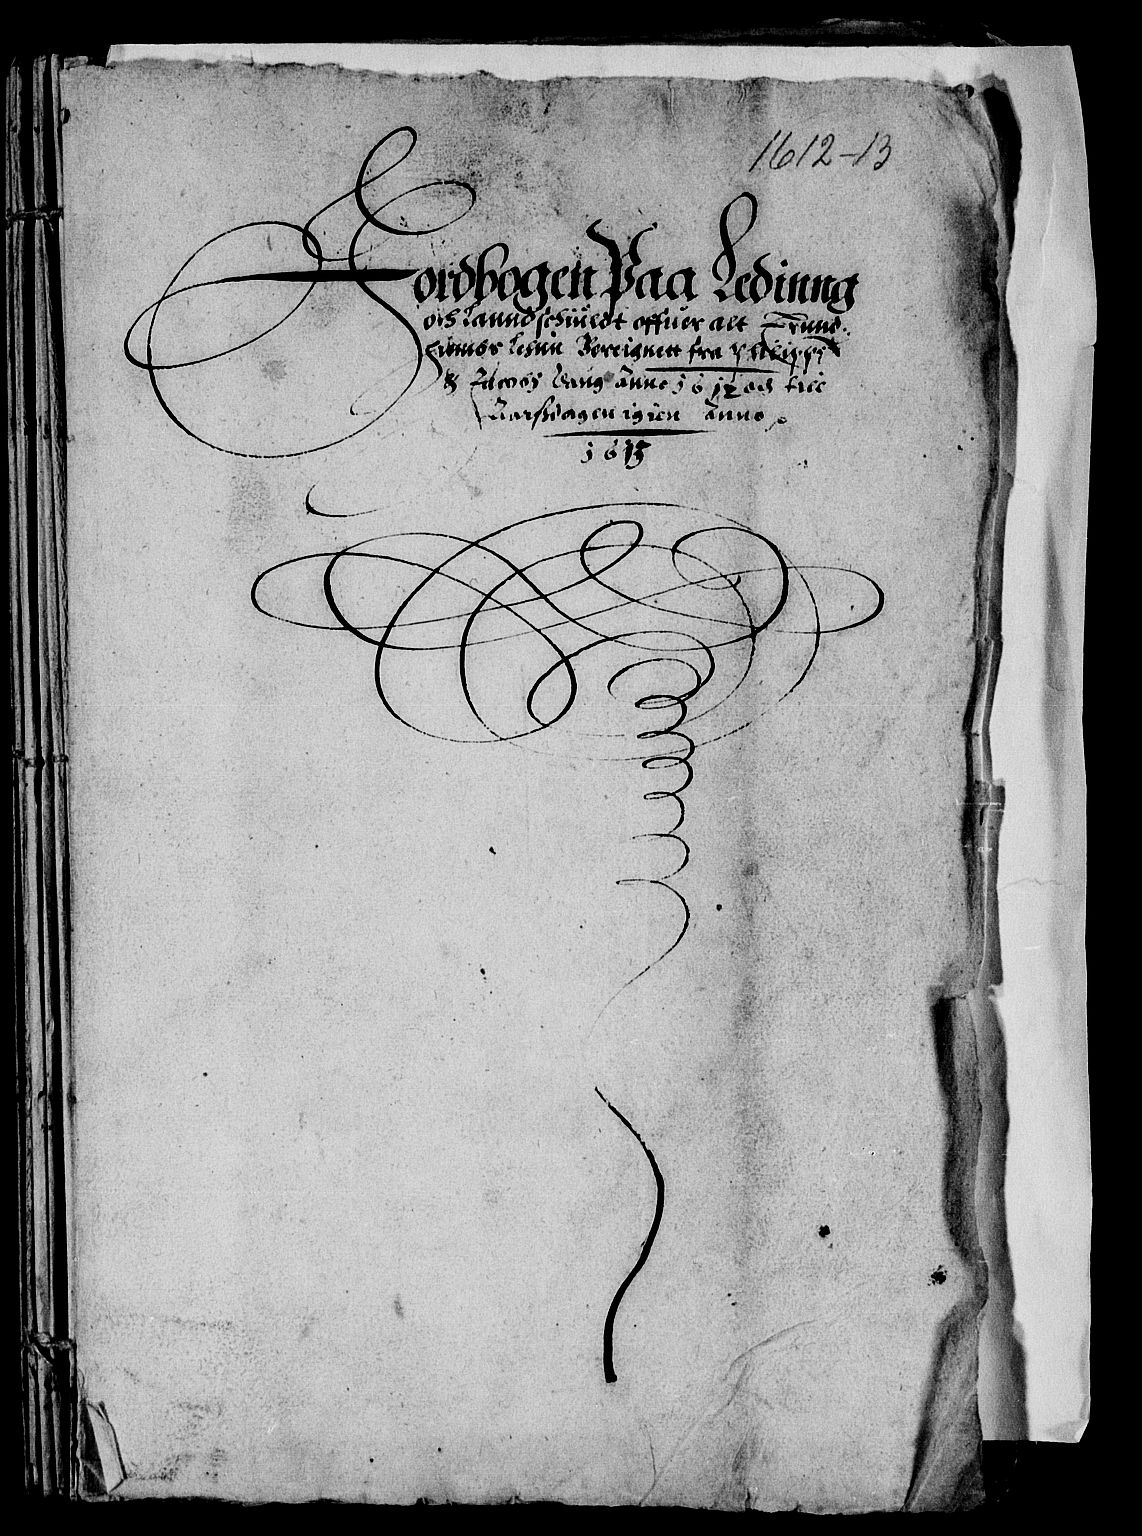 1612-13
Jordbogen Paa Ledinng
och Lanndschüldt offuer alt Trund
hiembs Lehnn Bereignett fra Philippi
& Jacobj Daug Anno 1612 och till
Aarssdagen igien Anno
1613